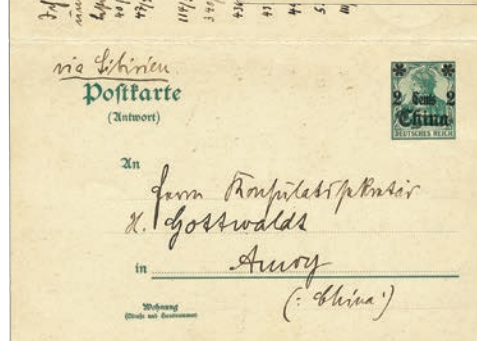 via Sibirien.
Postkarte
(Antwort)
2 Cents 2
China
DEUTSCHES REICH
An
Herrn Konsulatssekretär
H. Gottwaldt
in Amoy
(: China :)
Wohnung
(Straße und Hausnummer)